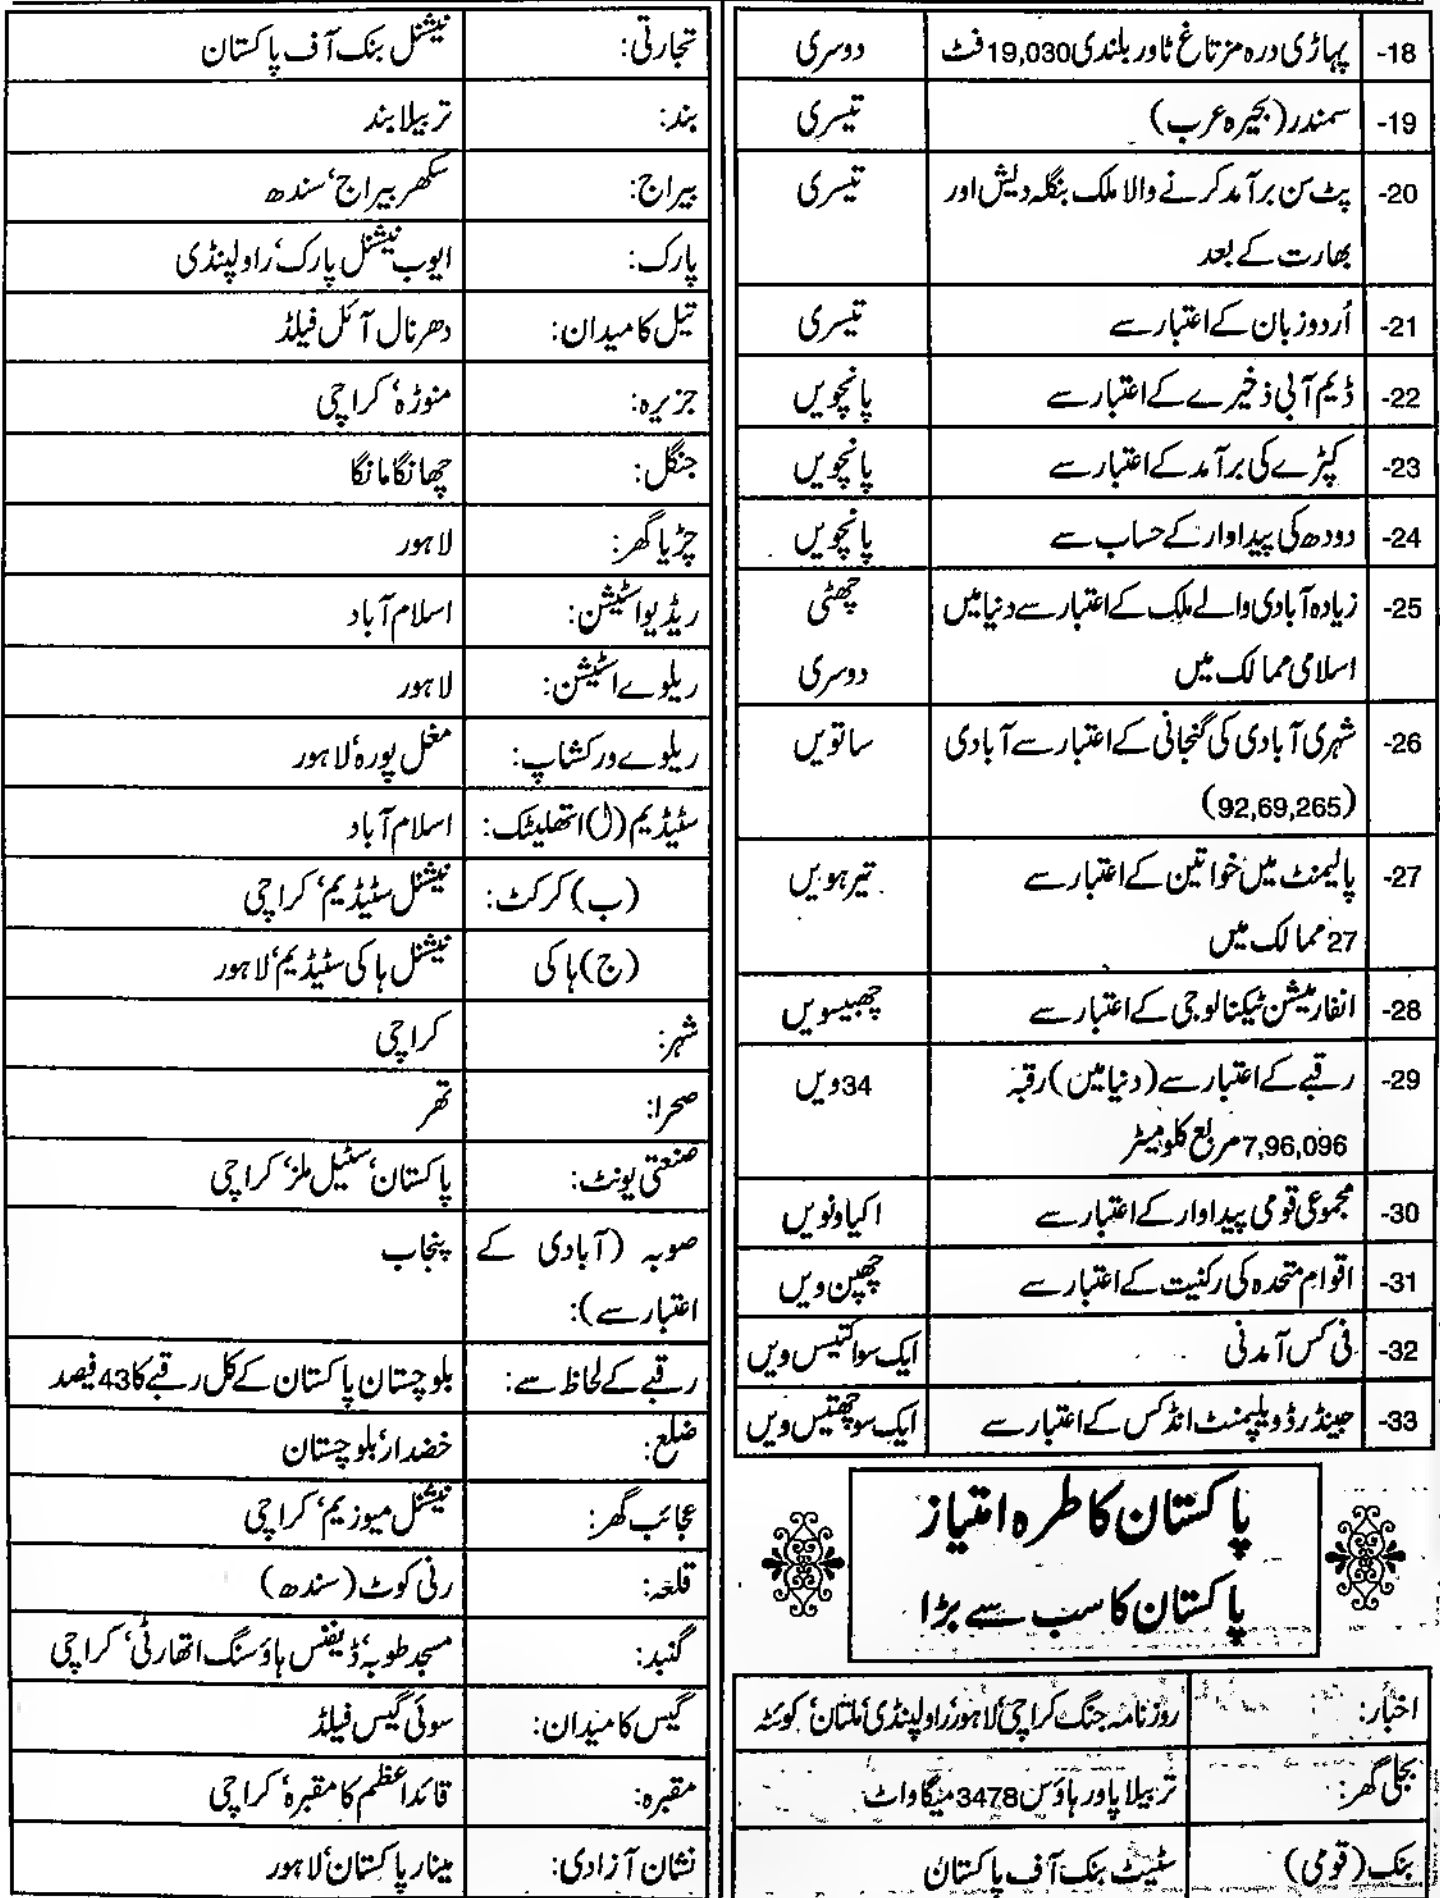 18- پہاڑی درہ مزتاغ ٹاور بلندی 19,030 فٹ دوسری
19- سمندر (بحیرہ عرب) تیسری
20- پٹ سن برآمد کرنے والا ملک بنگلہ دیش اور تیسری
بھارت کے بعد
21- اُردو زبان کے اعتبار سے تیسری
22- ڈیم آبی ذخیرے کے اعتبار سے پانچویں
23- کپڑے کی برآمد کے اعتبار سے پانچویں
24- دودھ کی پیداوار کے حساب سے پانچویں
25- زیادہ آبادی والے ملک کے اعتبار سے دنیا میں چھٹی
اسلامی ممالک میں دوسری
26- شہری آبادی کی گنجانی کے اعتبار سے آبادی ساتویں
(92,69,265)
27- پالیمنٹ میں خواتین کے اعتبار سے تیرہویں
27 ممالک میں
28- انفارمیشن ٹیکنالوجی کے اعتبار سے چھبیسویں
29- رقبے کے اعتبار سے (دنیا میں) رقبہ 34ویں
7,96,096 مربع کلومیٹر
30- مجموعی قومی پیداوار کے اعتبار سے اکیاونویں
31- اقوام متحدہ کی رکنیت کے اعتبار سے چھپن ویں
32- فی کس آمدنی ایک سو اکتیس ویں
33- جینڈر ڈویلپمنٹ انڈکس کے اعتبار سے ایک سو چھتیس ویں
پاکستان کا طرہ امتیاز
پاکستان کا سب سے بڑا
اخبار: روزنامہ جنگ کراچی، لاہور، راولپنڈی، ملتان، کوئٹہ
بجلی گھر: تربیلا پاور ہاؤس 3478 میگاواٹ
بنک (قومی) سٹیٹ بنک آف پاکستان
تجارتی: نیشنل بنک آف پاکستان
بند: تربیلا بند
بیراج: سکھر بیراج، سندھ
پارک: ایوب نیشنل پارک، راولپنڈی
تیل کا میدان: دھرنال آئل فیلڈ
جزیرہ: منوڑہ، کراچی
جنگل: چھانگا مانگا
چڑیا گھر: لاہور
ریڈیو اسٹیشن: اسلام آباد
ریلوے اسٹیشن: لاہور
ریلوے ورکشاپ: مغل پورہ، لاہور
سٹیڈیم (ا) اتھلیٹک: اسلام آباد
(ب) کرکٹ: نیشنل سٹیڈیم، کراچی
(ج) ہاکی نیشنل ہاکی سٹیڈیم، لاہور
شہر: کراچی
صحرا: تھر
صنعتی یونٹ: پاکستان، سٹیل ملز، کراچی
صوبہ (آبادی کے پنجاب
اعتبار سے):
رقبے کے لحاظ سے: بلوچستان پاکستان کے کل رقبے کا 43 فیصد
ضلع: خضدار، بلوچستان
عجائب گھر: نیشنل میوزیم، کراچی
قلعہ: رنی کوٹ (سندھ)
گنبد: مسجد طوبہ، ڈیفنس ہاؤسنگ اتھارٹی، کراچی
گیس کا میدان: سوئی گیس فیلڈ
مقبرہ: قائداعظم کا مقبرہ، کراچی
نشان آزادی: مینار پاکستان، لاہور